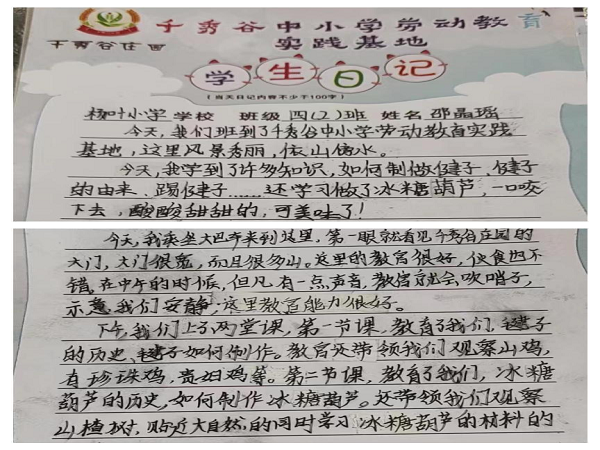 千秀谷中小学劳动教育
千秀谷庄园
实践基地
学生日记
(当天日记内容不少于100字)
杨叶小学 学校 班级 四(2)班 姓名 邵晶瑶
今天,我们班到了千秀谷中小学劳动教育实践
基地,这里风景秀丽,依山傍水。
今天,我学到了许多知识,如何制做毽子、毽子
的由来、踢毽子……还学习做了冰糖葫芦,一口咬
下去,酸酸甜甜的,可美味了!
今天,我乘坐大巴车来到这里,第一眼就看见千秀谷庄园的
大门,大门很宽,而且很多山。这里的教官很好,伙食也不
错。在中午的时候,但凡有一点声音,教官就会吹哨子,
示意我们安静,这里教官能力很好。
下午,我们上了两堂课,第一节课,教育了我们,毽子
的历史、毽子如何制作。教官还带领我们观察山鸡,
有珍珠鸡,贵妇鸡等。第二节课,教育了我们,冰糖
葫芦的历史,如何制作冰糖葫芦。还带领我们观察
山楂树,贴近大自然的同时学习冰糖葫芦的材料的